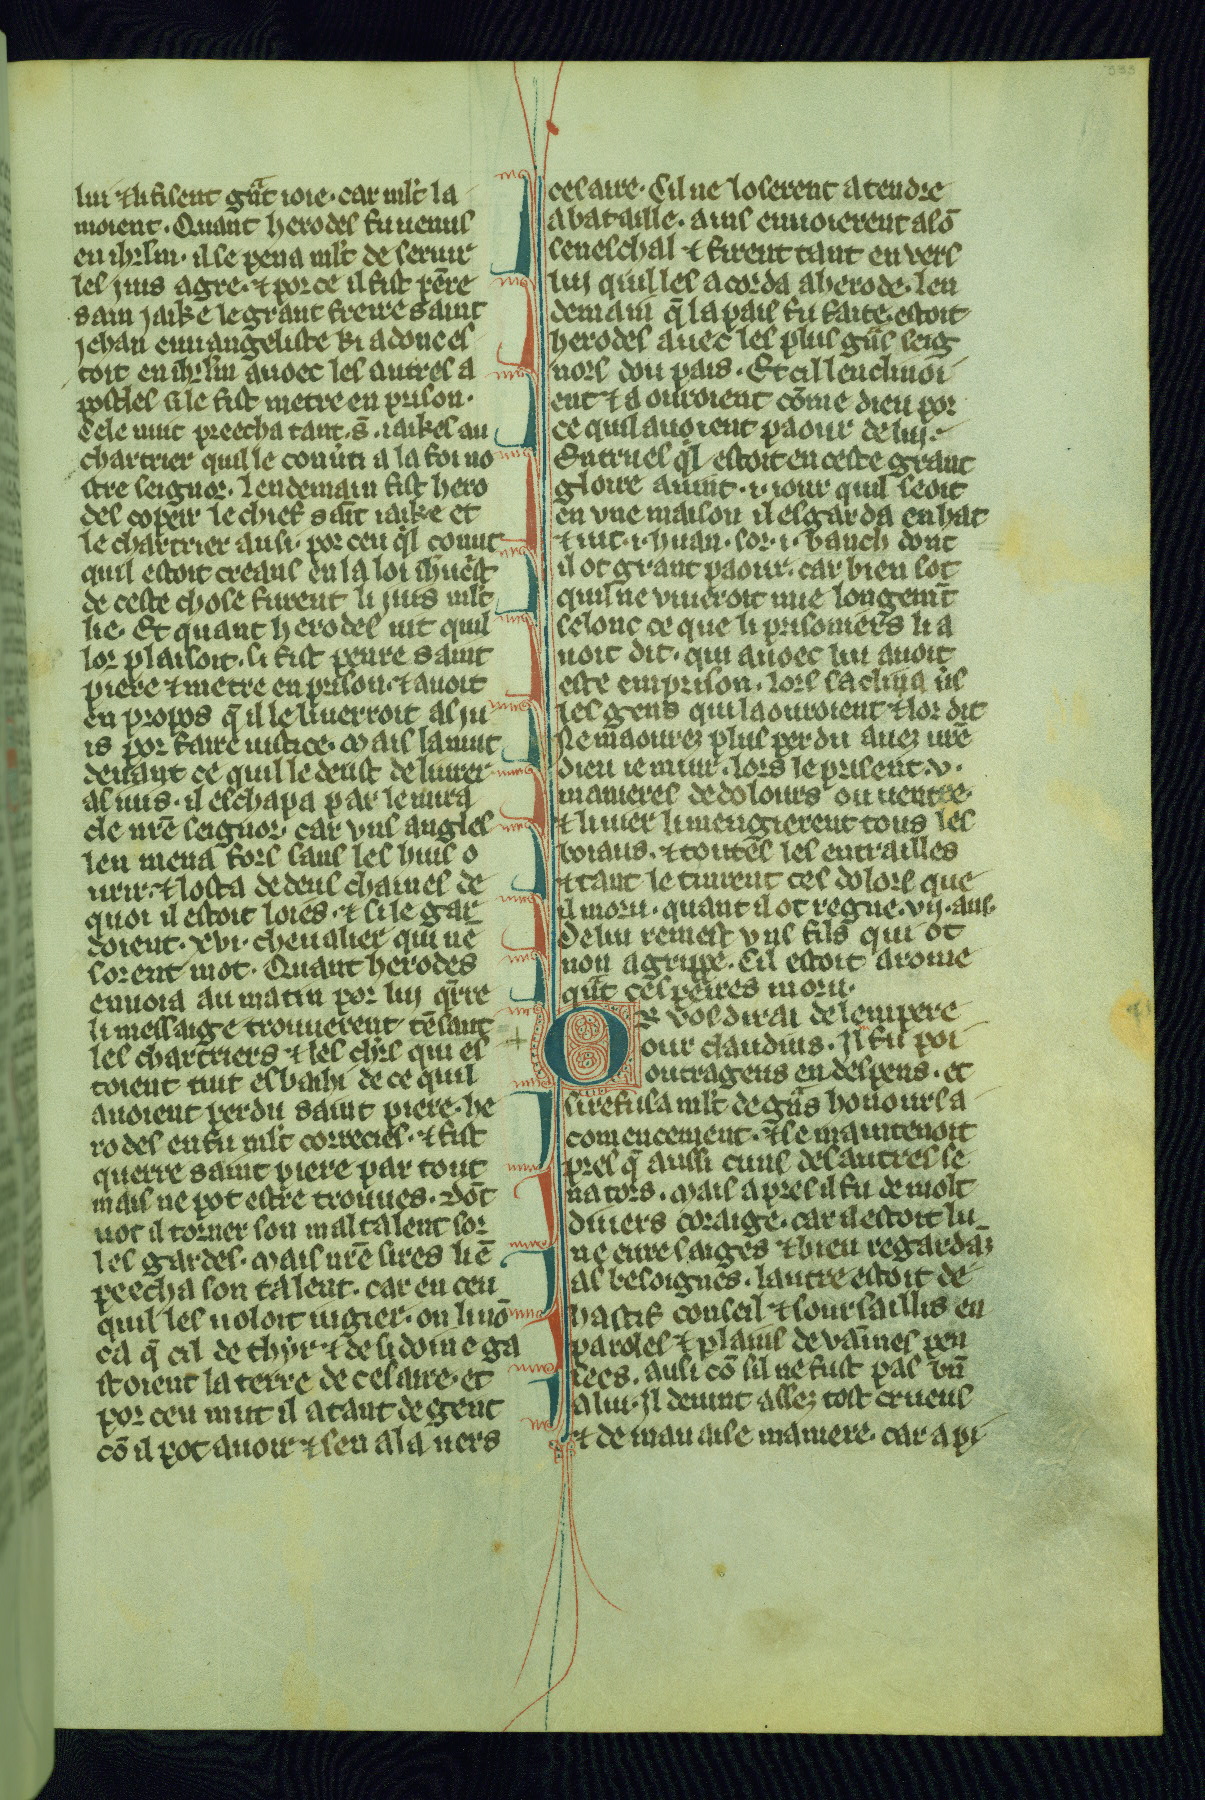 lui ⁊ li fisent gͣt ioie · car ml't la
moient · Quant herodes fu uenus
en ih'rlm · il se pena ml't de seruir
les juis a gre · ⁊ por ce il fist pēre
sain jaike le grant freire saint
jehan euuangeliste ki adonc es
toit en ih'rlm auoec les autres a
postles si le fist metre en prison ·
Cele nuit preecha tant · s̄ · iaikes au
chartrier quil le conu'ti a la foi no
stre seignor · lendemain fist hero
des coper le chief saīt iaike et
le chartrier ausi · por ceu q̄l conut
quil estoit creans en la loi ih'ucst
de ceste chose furent li juis ml't
lie · Et quant herodes uit quil
lor plaisoit · si fist penre saint
piere ⁊ metre en prison · ⁊ auoit
en propos q̄ il le liuerroit as ju
is por faire iustice · Mais la nuit
deuant ce quil le deust deliurer
as iuis · il eschapa par le mira
cle nr̄e seignor · car vns angles
len mena fors sans les huis o
urir · ⁊ losta de deus chaines de
quoi il estoit loies · ⁊ si le gar
doient · xvi · cheualier qui ne
sorent mot · Quant herodes
enuoia au matin por lui q̄rre
li messaige trouuerent tēsant
les chartriers ⁊ les chr̄s qui es
toient tuit esbaihi de ce quil
auoient perdu saint piere · he
rodes en fu ml't correcies · ⁊ fist
querre saint piere par tout
mais ne pot estre trouues · Dōt
uot il torner son maltalent sor
les gardes · Mais nr̄e sires li ē
peecha son talent · car en ceu
quil les uoloit iugier · on li nō
ca q̄ cil de thyr ⁊ de sidoine ga
stoient la terre de cesaire · et
por ceu mut il a tant de gent
cō il pot auoir ⁊ sen ala uers
cesaire · Cil ne loserent atendre
a bataille · ains enuoierent a sō
seneschal ⁊ firent tant en vers
lui quil les acorda a herode · len
demain q̄ la pais fu faite · estoit
herodes auec les plus gͣns seig
nors dou pais · Et cil lenclinoi
ent ⁊ aouroient cōme dieu por
ce quil auoient paour de lui ·
Entrues q̄l estoit en ceste grant
gloire auint · i · iour quil seoit
en vne maison il esgarda en hat
⁊ uit · i · huan · sor · i · banch dont
il ot grant paour · car bien sot
quil ne viueroit mie longem̄t
selonc ce que li prisoniers li a
uoit dit · qui auoec lui auoit
este emprison · lors sa clina u's
les gens qui laouroient ⁊ lor dit
Ne maourez plus perdu auez ur̄e
dieu ie muir · lors le prisent · v ·
manieres de dolours ou uentre ·
⁊ li uier li mengierent tous les
boiaus · ⁊ toutes les entrailles
⁊ tant le tinrent ces dolors que
il moru · quant il ot regne · vij · ans ·
De lui remest vns fils qui ot
non agrippe · Cil estoit a rome
qͣt ces peires moru ·
Or vos dirai de lempere
our claudius · Il fu poi
outrageus en despens · et
si refusa ml't de gͣns honours a
comencement · ⁊ se maintenoit
pres q̄ aussi cuns des autres se
nators · Mais apres il fu de molt
diuers coraige · car il estoit lu
ne eure saiges ⁊ bien regardaz
as besoignes · lautre estoit de
hastif conseil ⁊ soursaillis en
paroles ⁊ plains de vaīnes pen
sees · ausi cō sil ne fust pas bn̄
a lui · Il deuint assez tost crueus
⁊ de mauaise maniere · car a pi